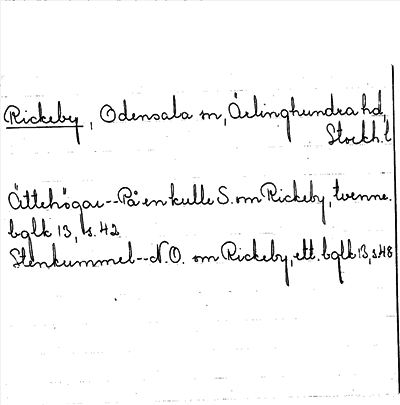 Rickeby, Odensala sn, Ärlinghundra hd,
Stockh. l
Ättehögar--På en kulle S. om Rickeby, tvenne.
bglk 13, s. 42
Stenkummel--N.O. om Rickeby, ett. bglk 13, s. 48